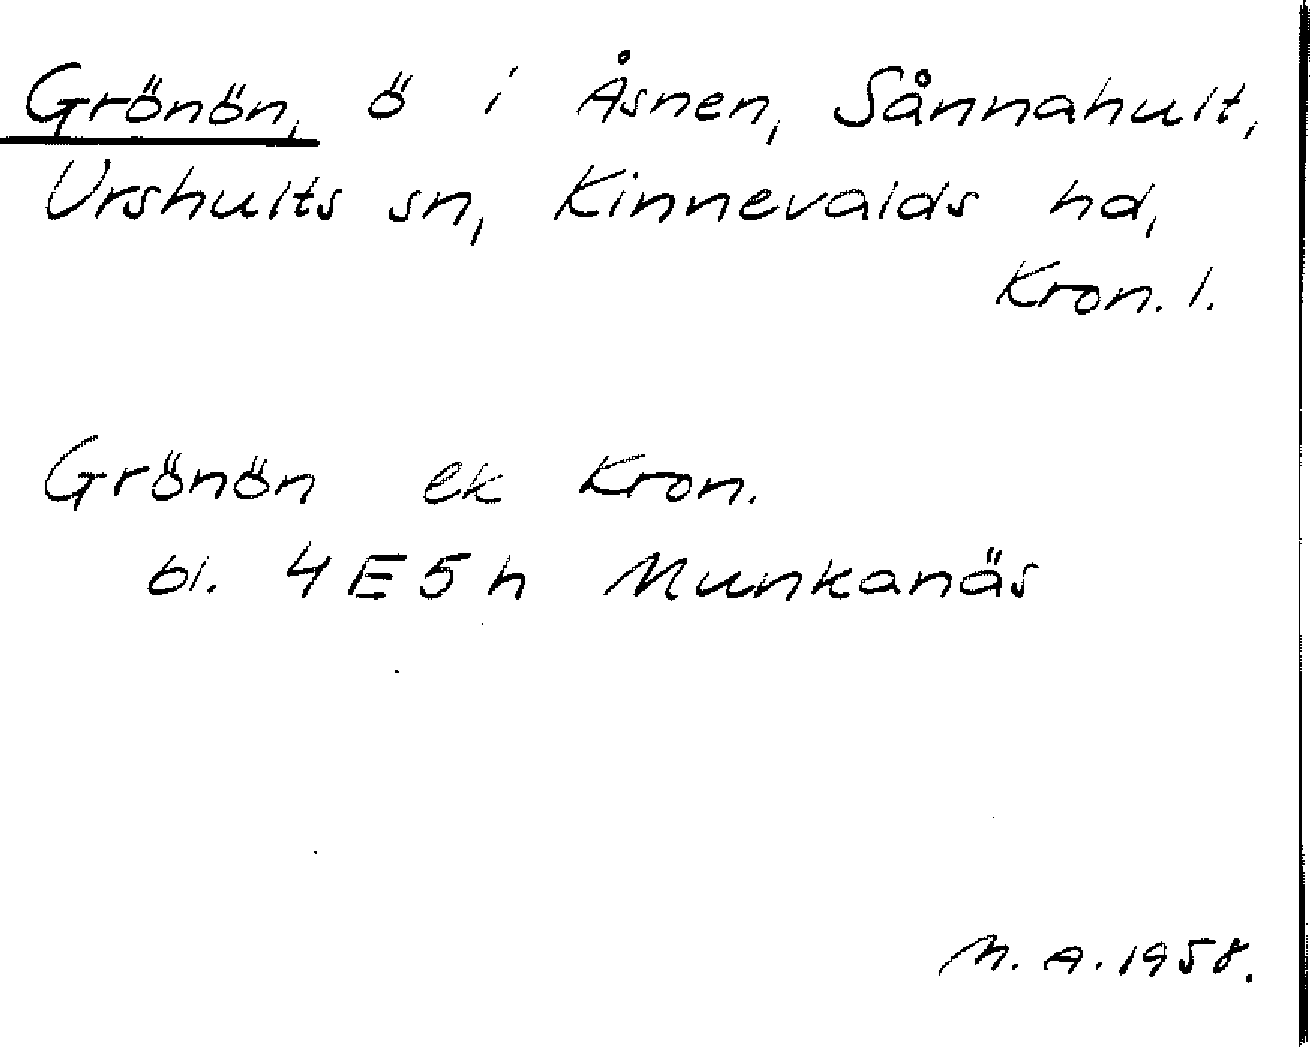 Grönön, ö i Åsnen, Sånnahult,
Urshults sn, Kinnevalds hd,
Kron. l.
Grönön ek Kron.
bl. 4E5h Munkanäs
M. A. 1958.